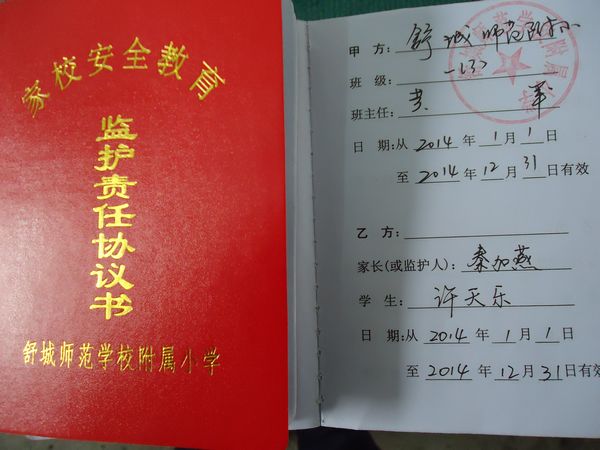 家校安全教育
监护责任协议书
舒城师范学校附属小学
甲 方：舒城师范附小
班 级：一(3)
班主任：
日 期：从 2014 年 1 月 1 日
至 2014 年 12 月 31 日有效
乙 方：
家长(或监护人)：秦加燕
学 生：许天乐
日 期：从 2014 年 1 月 1 日
至 2014 年 12 月 31 日有效